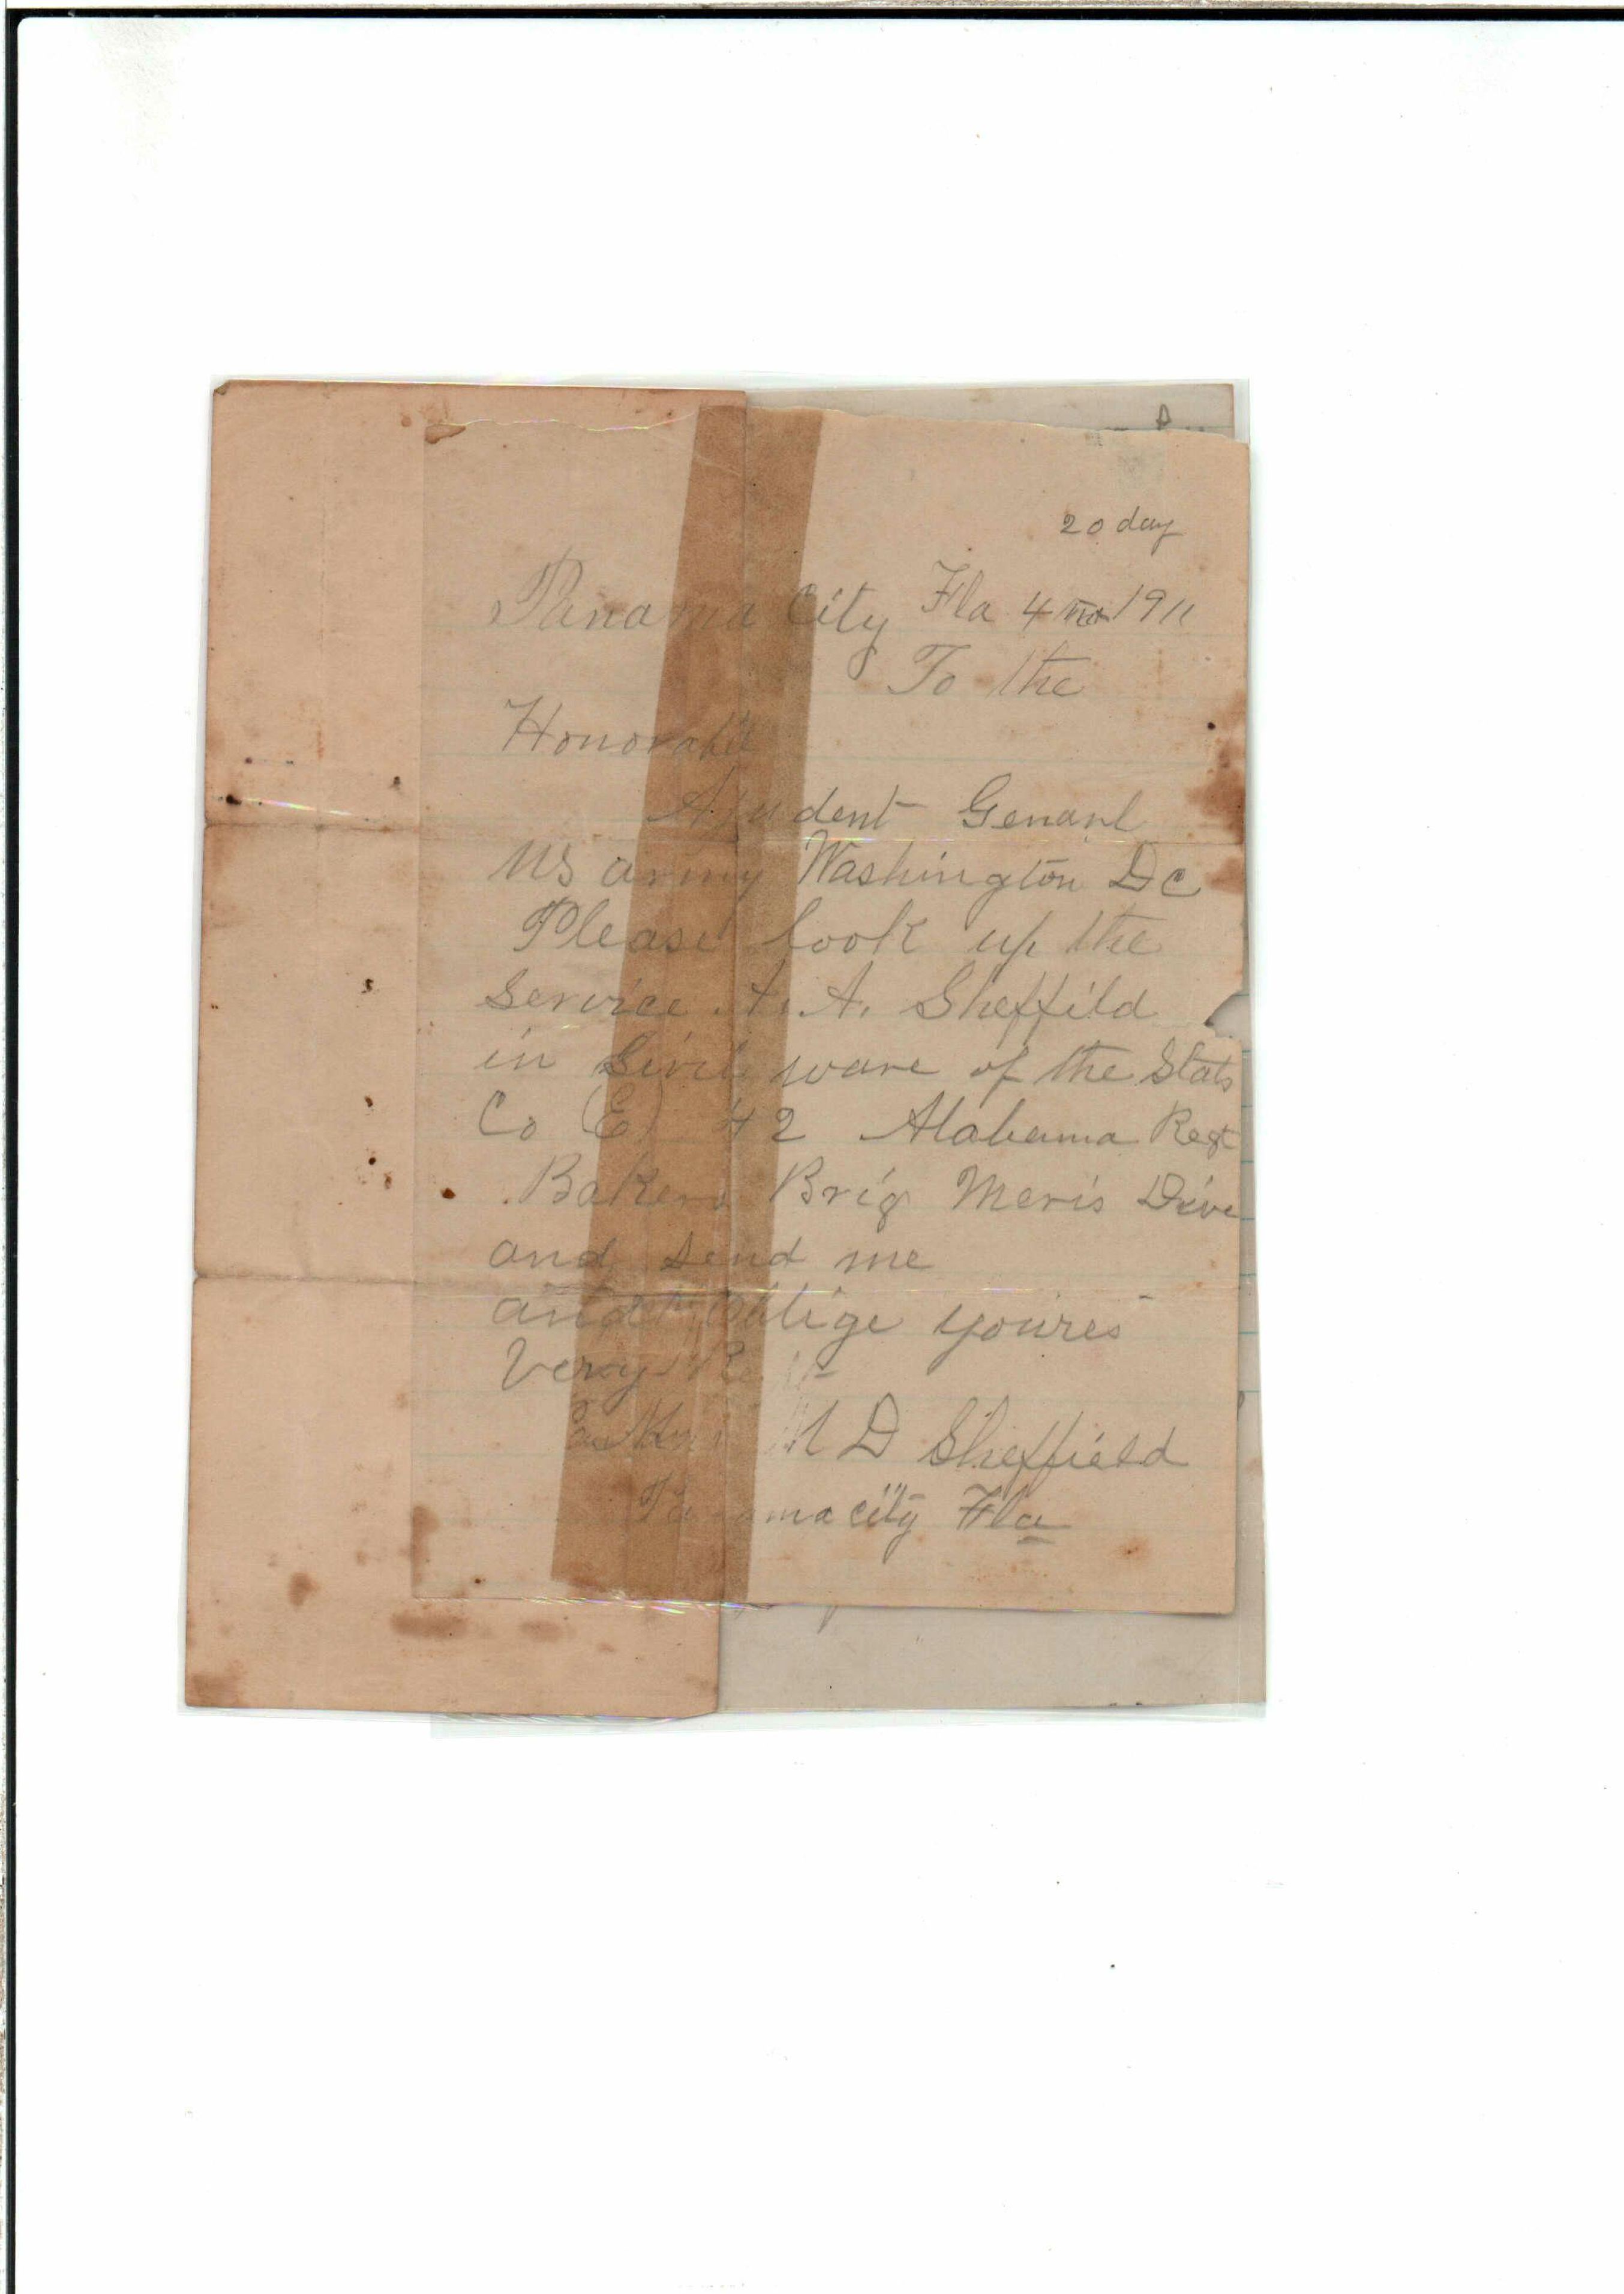 20 day
Panama City Fla 4 mo 1911
To the
Honorable
Ajudent Genarl
US army Washington Dc
Please look up the
Service A. A. Sheffild
in Sivil ware of the Stats
Co (E) 42 Alabama Regt
Bakers Brig Meris Dive
and send me
and oblige youres
Very
M D Sheffield
Panama city Fla